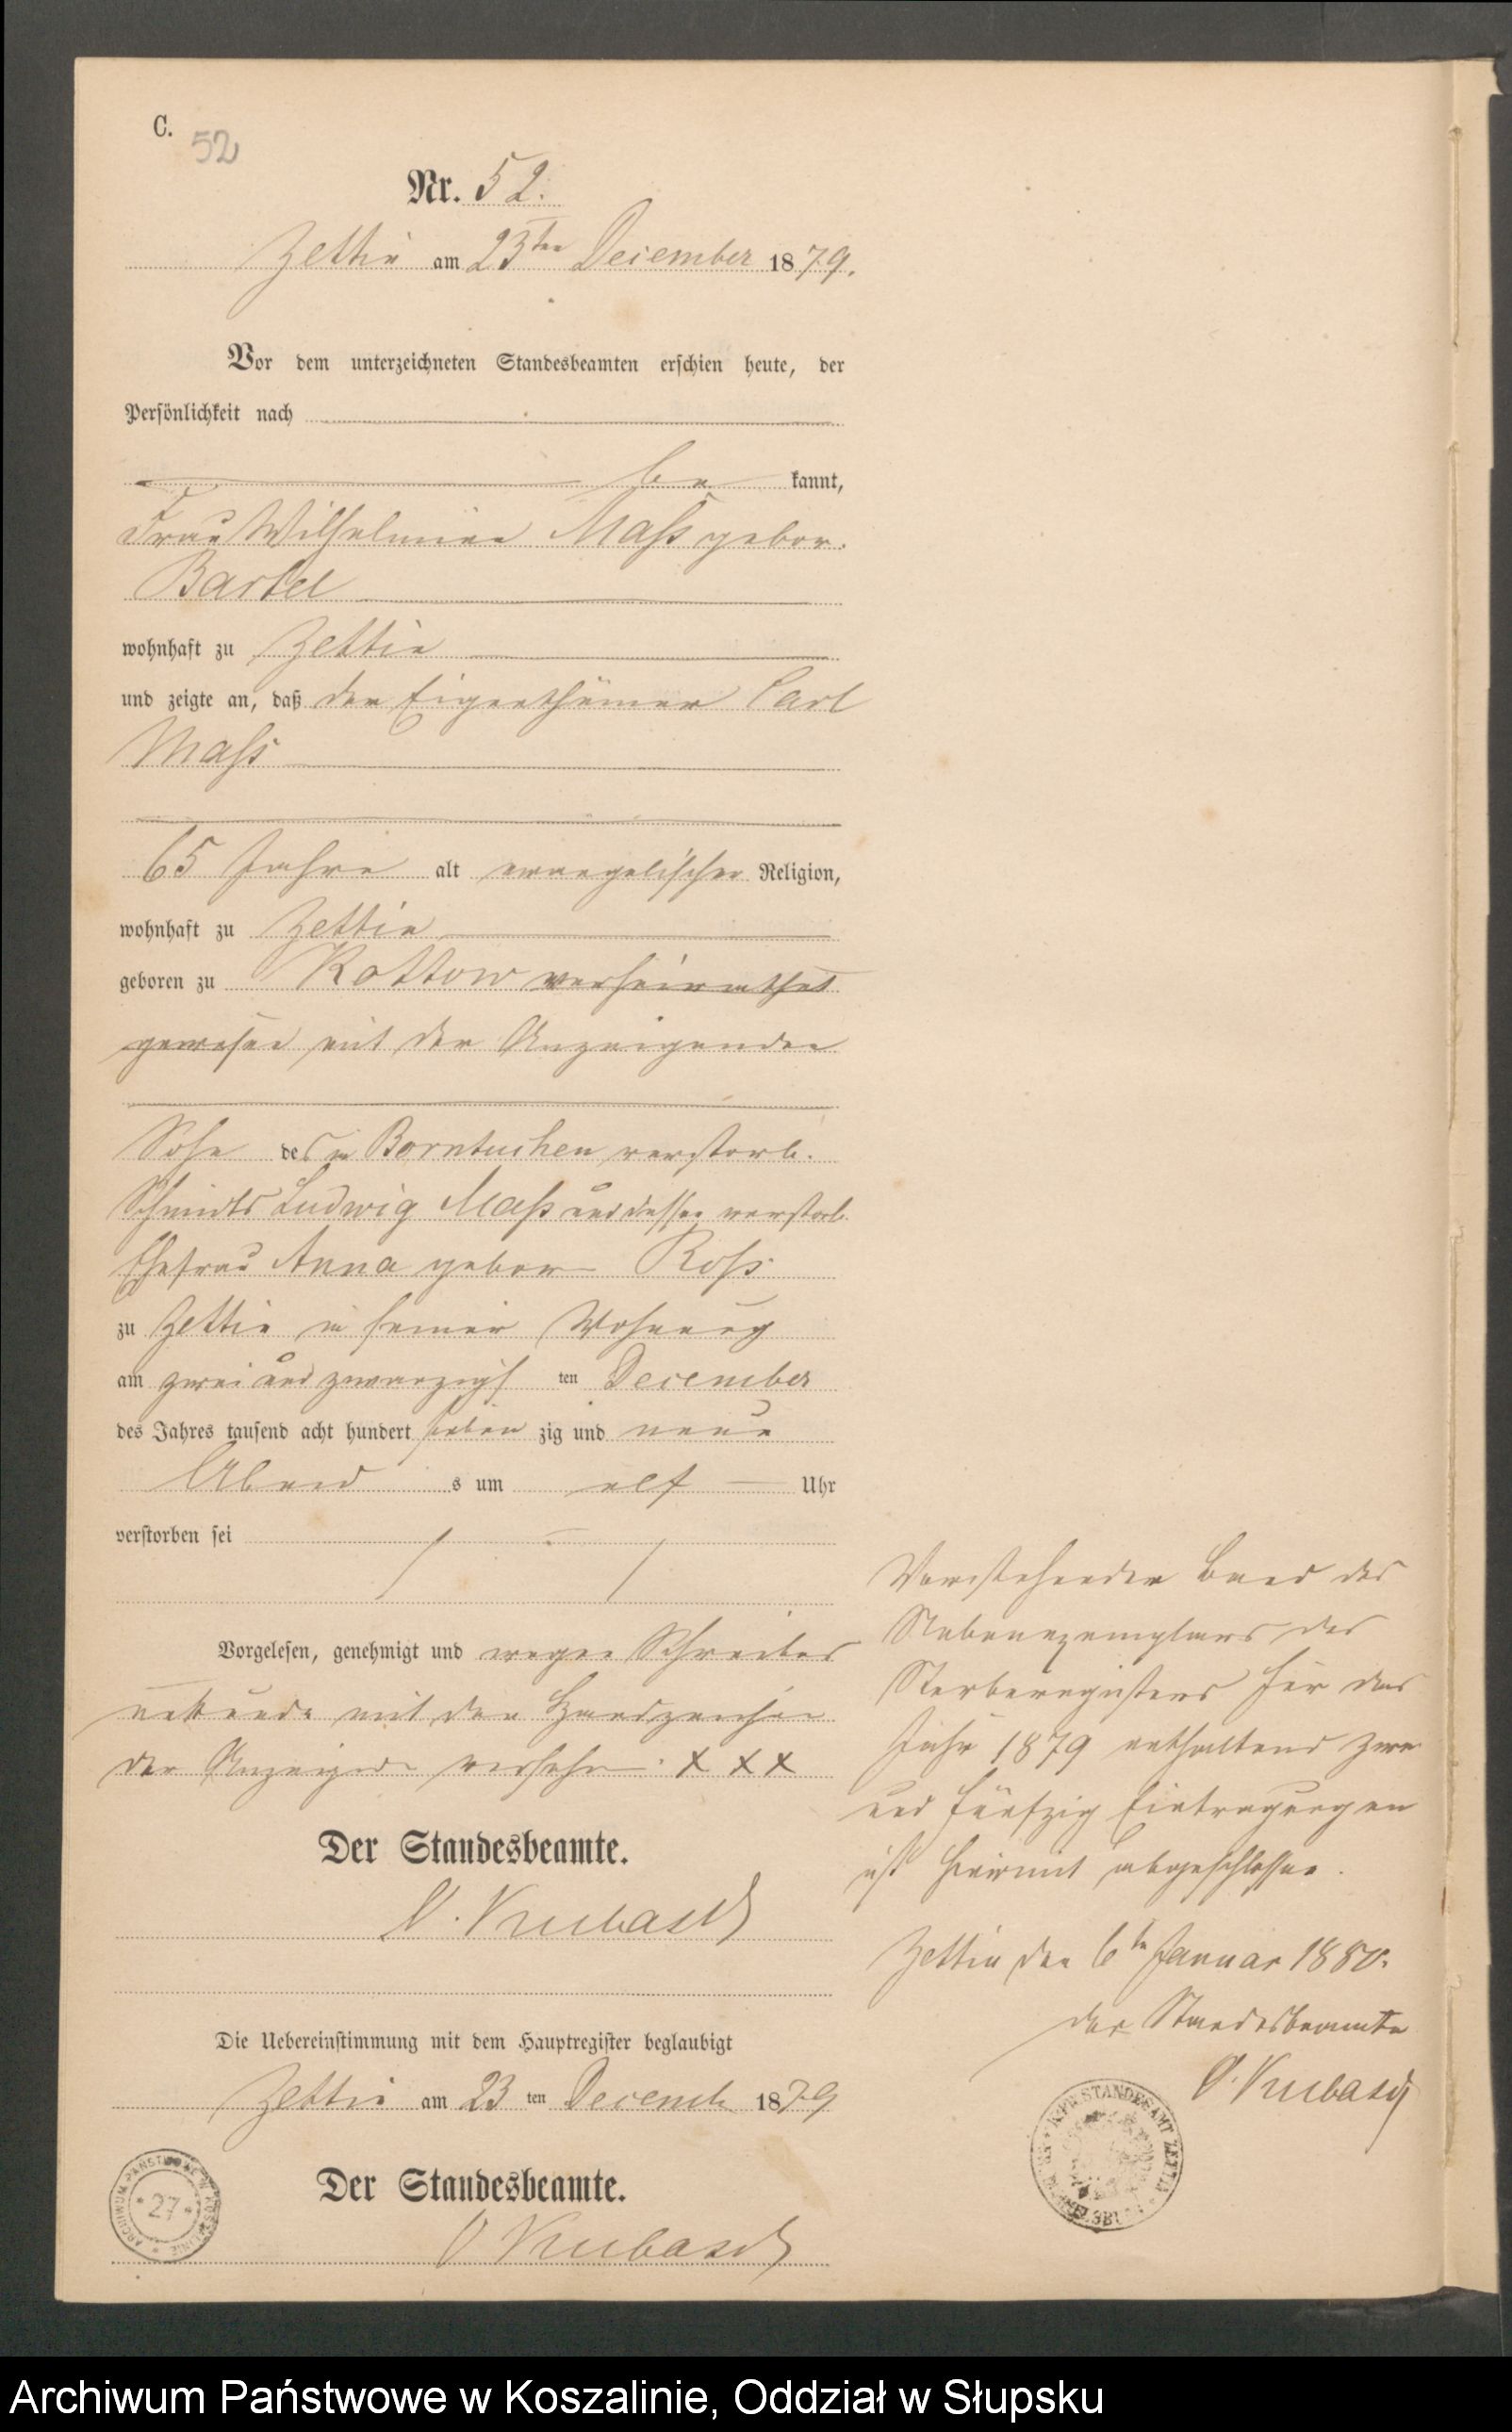 C.
52
Nr. 52.
Zettin am 23ten December 1879.
Vor dem unterzeichneten Standesbeamten erschien heute, der
Persönlichkeit nach
be kannt,
Frau Wilhelmine Maß gebor.
Bartel
wohnhaft zu Zettin
und zeigte an, daß der Eigenthümer Carl
Maß
65 Jahre alt evangelischer Religion,
wohnhaft zu Zettin
geboren zu Kottow verheirathet
gewesen mit der Anzeigenden
Sohn des in Borntuchen verstorb.
Schmidts Ludwig Maß und dessen verstorb.
Ehefrau Anna gebor Roß
zu Zettin in seiner Wohnung
am zwei und zwanzigs ten December
des Jahres tausend acht hundert sieben zig und neun
Abend s um elf Uhr
verstorben sei
Vorgelesen, genehmigt und wegen Schreibes
unkunde mit den Handzeichen
der Anzeigende versehen. X X X
Der Standesbeamte.
Die Uebereinstimmung mit dem Hauptregister beglaubigt
Zettin am 23 ten Decemb 1879
Der Standesbeamte.
Vorstehender Band des
Nebenexemplars des
Sterberegisters für das
Jahr 1879 enthaltend zwei
und fünfzig Eintragungen
ist hiermit abgeschlossen.
Zettin den 6ten Januar 1880.
der Standesbeamte
STANDESAMT ZETTIN
ARCHIWUM PAŃSTWOWE W KOSZALINIE
27
Archiwum Państwowe w Koszalinie, Oddział w Słupsku